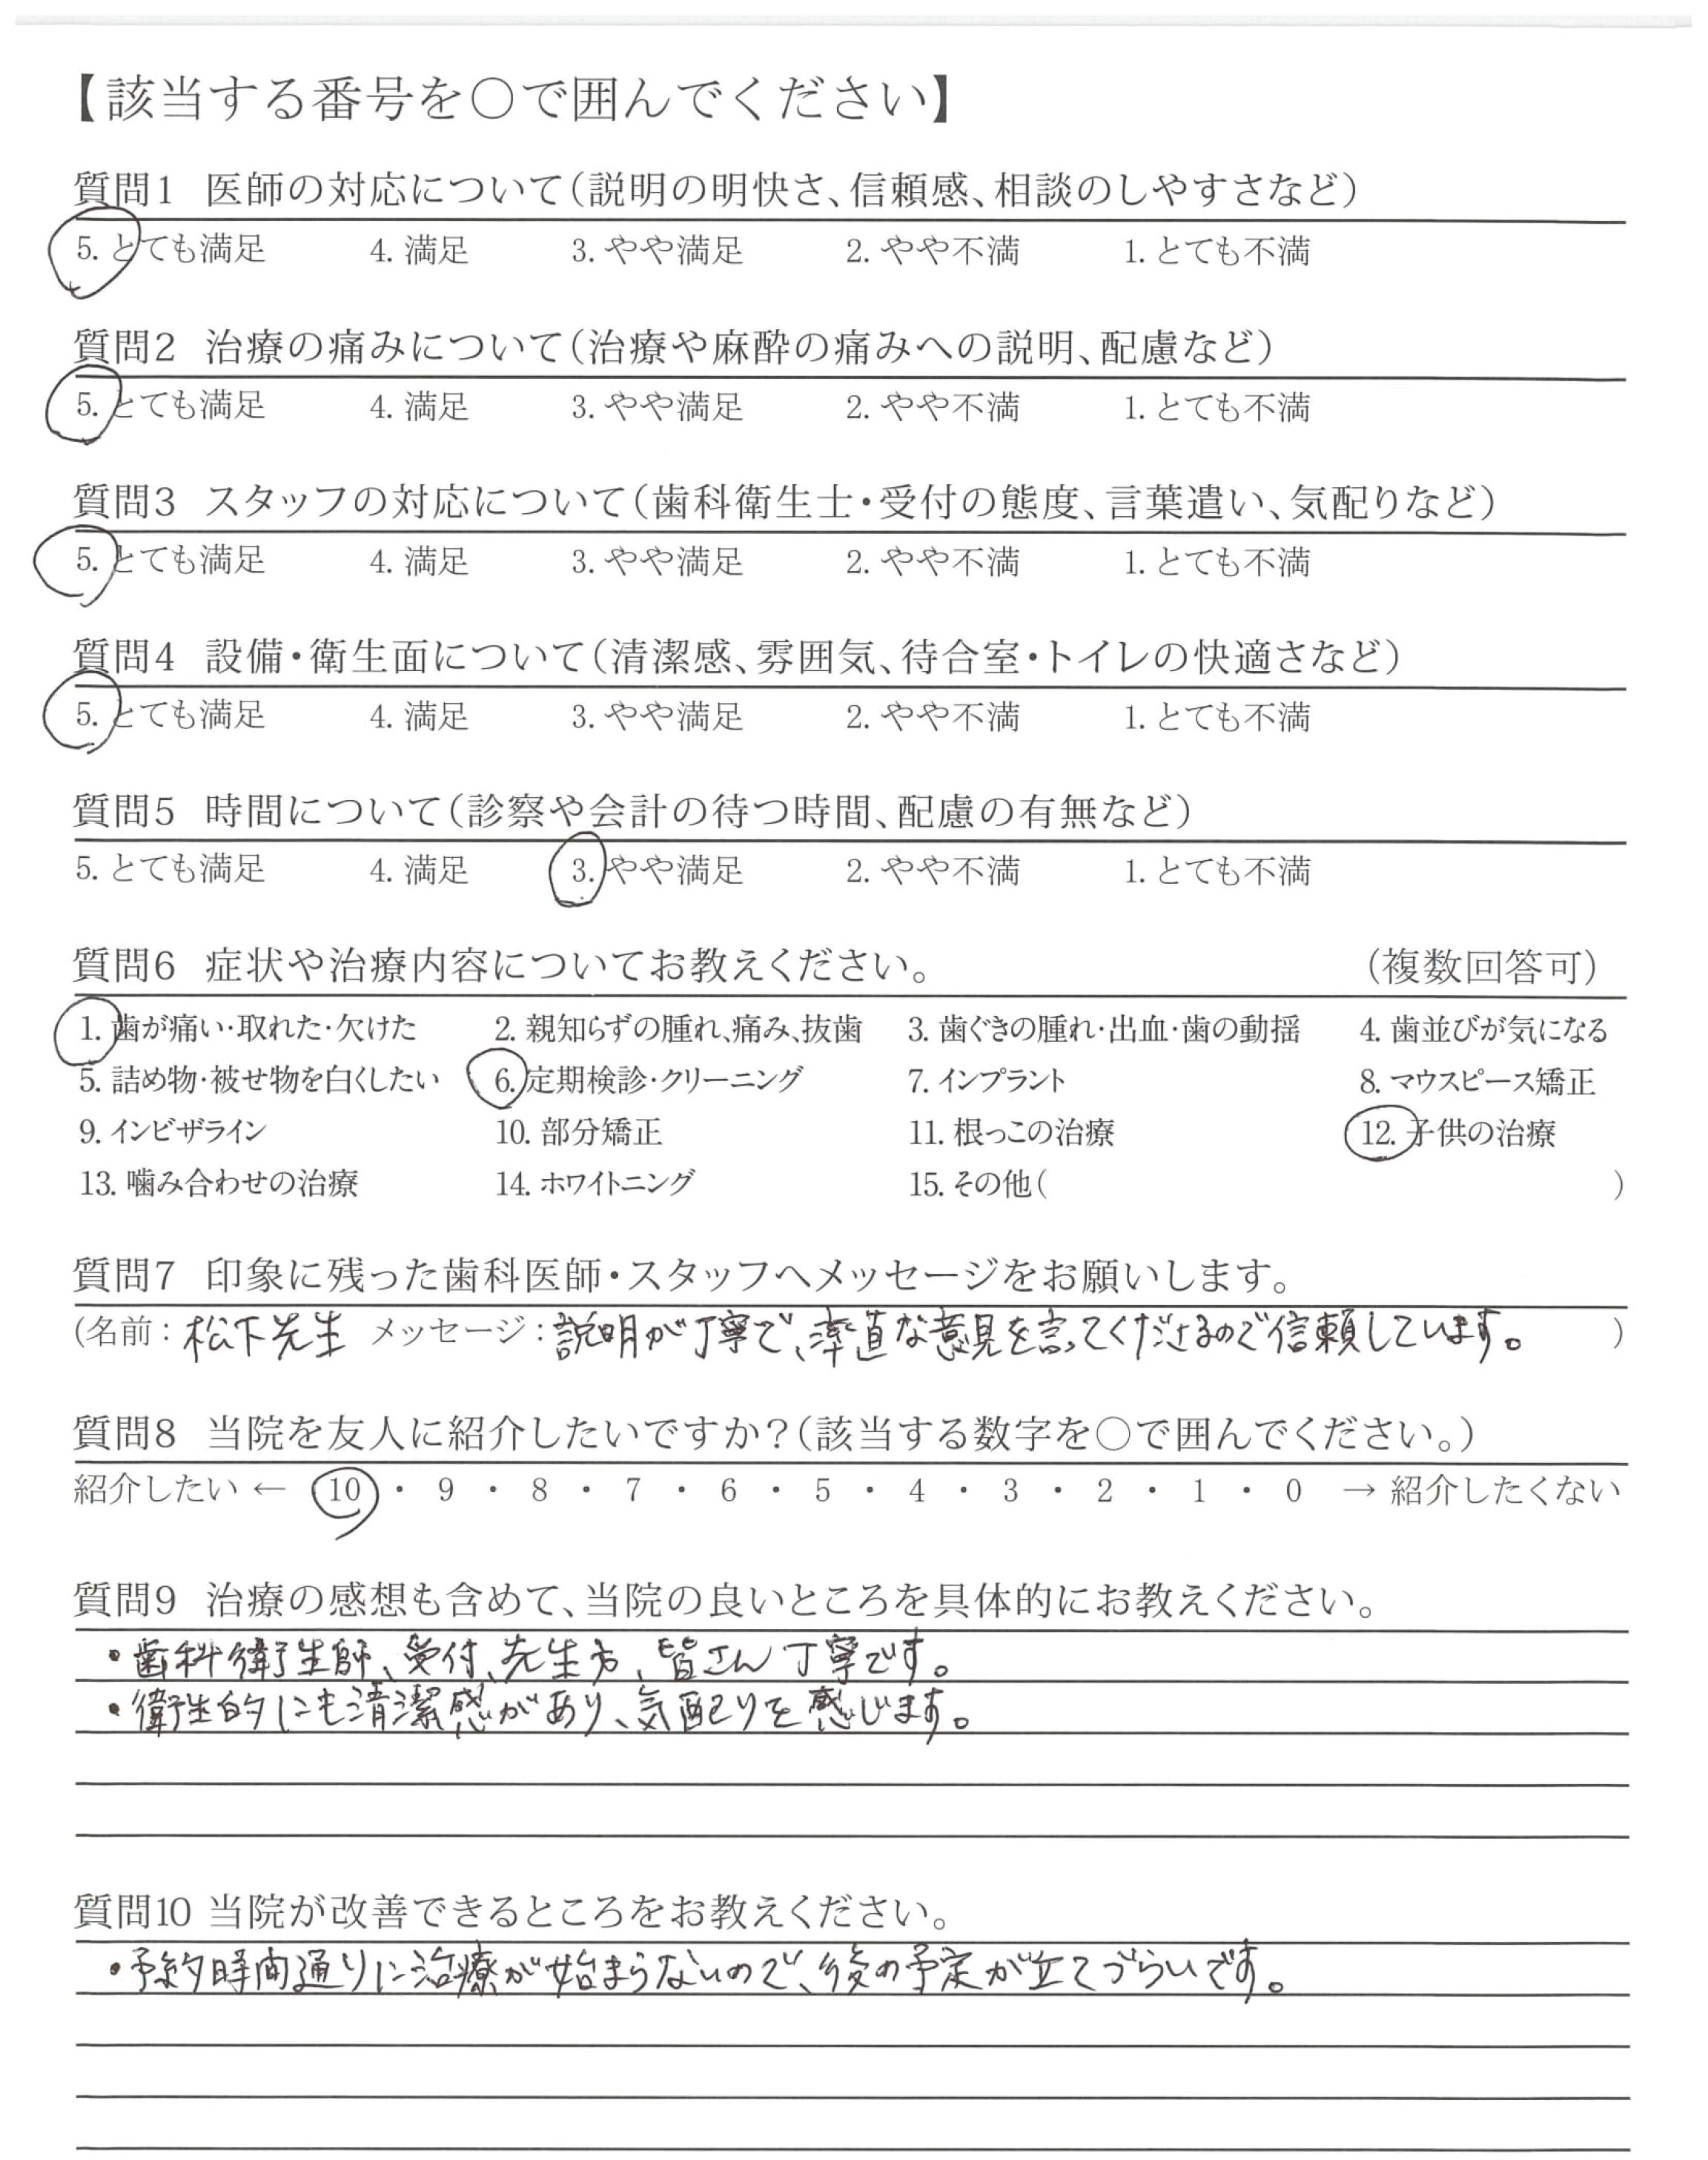 【該当する番号を○で囲んでください】
質問1 医師の対応について(説明の明快さ、信頼感、相談のしやすさなど)
5. とても満足 4. 満足 3. やや満足 2. やや不満 1. とても不満
質問2 治療の痛みについて(治療や麻酔の痛みへの説明、配慮など)
5. とても満足 4. 満足 3. やや満足 2. やや不満 1. とても不満
質問3 スタッフの対応について(歯科衛生士・受付の態度、言葉遣い、気配りなど)
5. とても満足 4. 満足 3. やや満足 2. やや不満 1. とても不満
質問4 設備・衛生面について(清潔感、雰囲気、待合室・トイレの快適さなど)
5. とても満足 4. 満足 3. やや満足 2. やや不満 1. とても不満
質問5 時間について(診察や会計の待つ時間、配慮の有無など)
5. とても満足 4. 満足 3. やや満足 2. やや不満 1. とても不満
質問6 症状や治療内容についてお教えください。 (複数回答可)
1. 歯が痛い・取れた・欠けた 2. 親知らずの腫れ、痛み、抜歯 3. 歯ぐきの腫れ・出血・歯の動揺 4. 歯並びが気になる
5. 詰め物・被せ物を白くしたい 6. 定期検診・クリーニング 7. インプラント 8. マウスピース矯正
9. インビザライン 10. 部分矯正 11. 根っこの治療 12. 子供の治療
13. 噛み合わせの治療 14. ホワイトニング 15. その他( )
質問7 印象に残った歯科医師・スタッフへメッセージをお願いします。
(名前:松下先生 メッセージ:説明が丁寧で、率直な意見を言ってくださるので信頼しています。 )
質問8 当院を友人に紹介したいですか?(該当する数字を○で囲んでください。)
紹介したい ← 10 ・ 9 ・ 8 ・ 7 ・ 6 ・ 5 ・ 4 ・ 3 ・ 2 ・ 1 ・ 0 → 紹介したくない
質問9 治療の感想も含めて、当院の良いところを具体的にお教えください。
・歯科衛生師、受付、先生方、皆さん丁寧です。
・衛生的にも清潔感があり、気配りを感じます。
質問10 当院が改善できるところをお教えください。
・予約時間通りに治療が始まらないので、後の予定が立てづらいです。